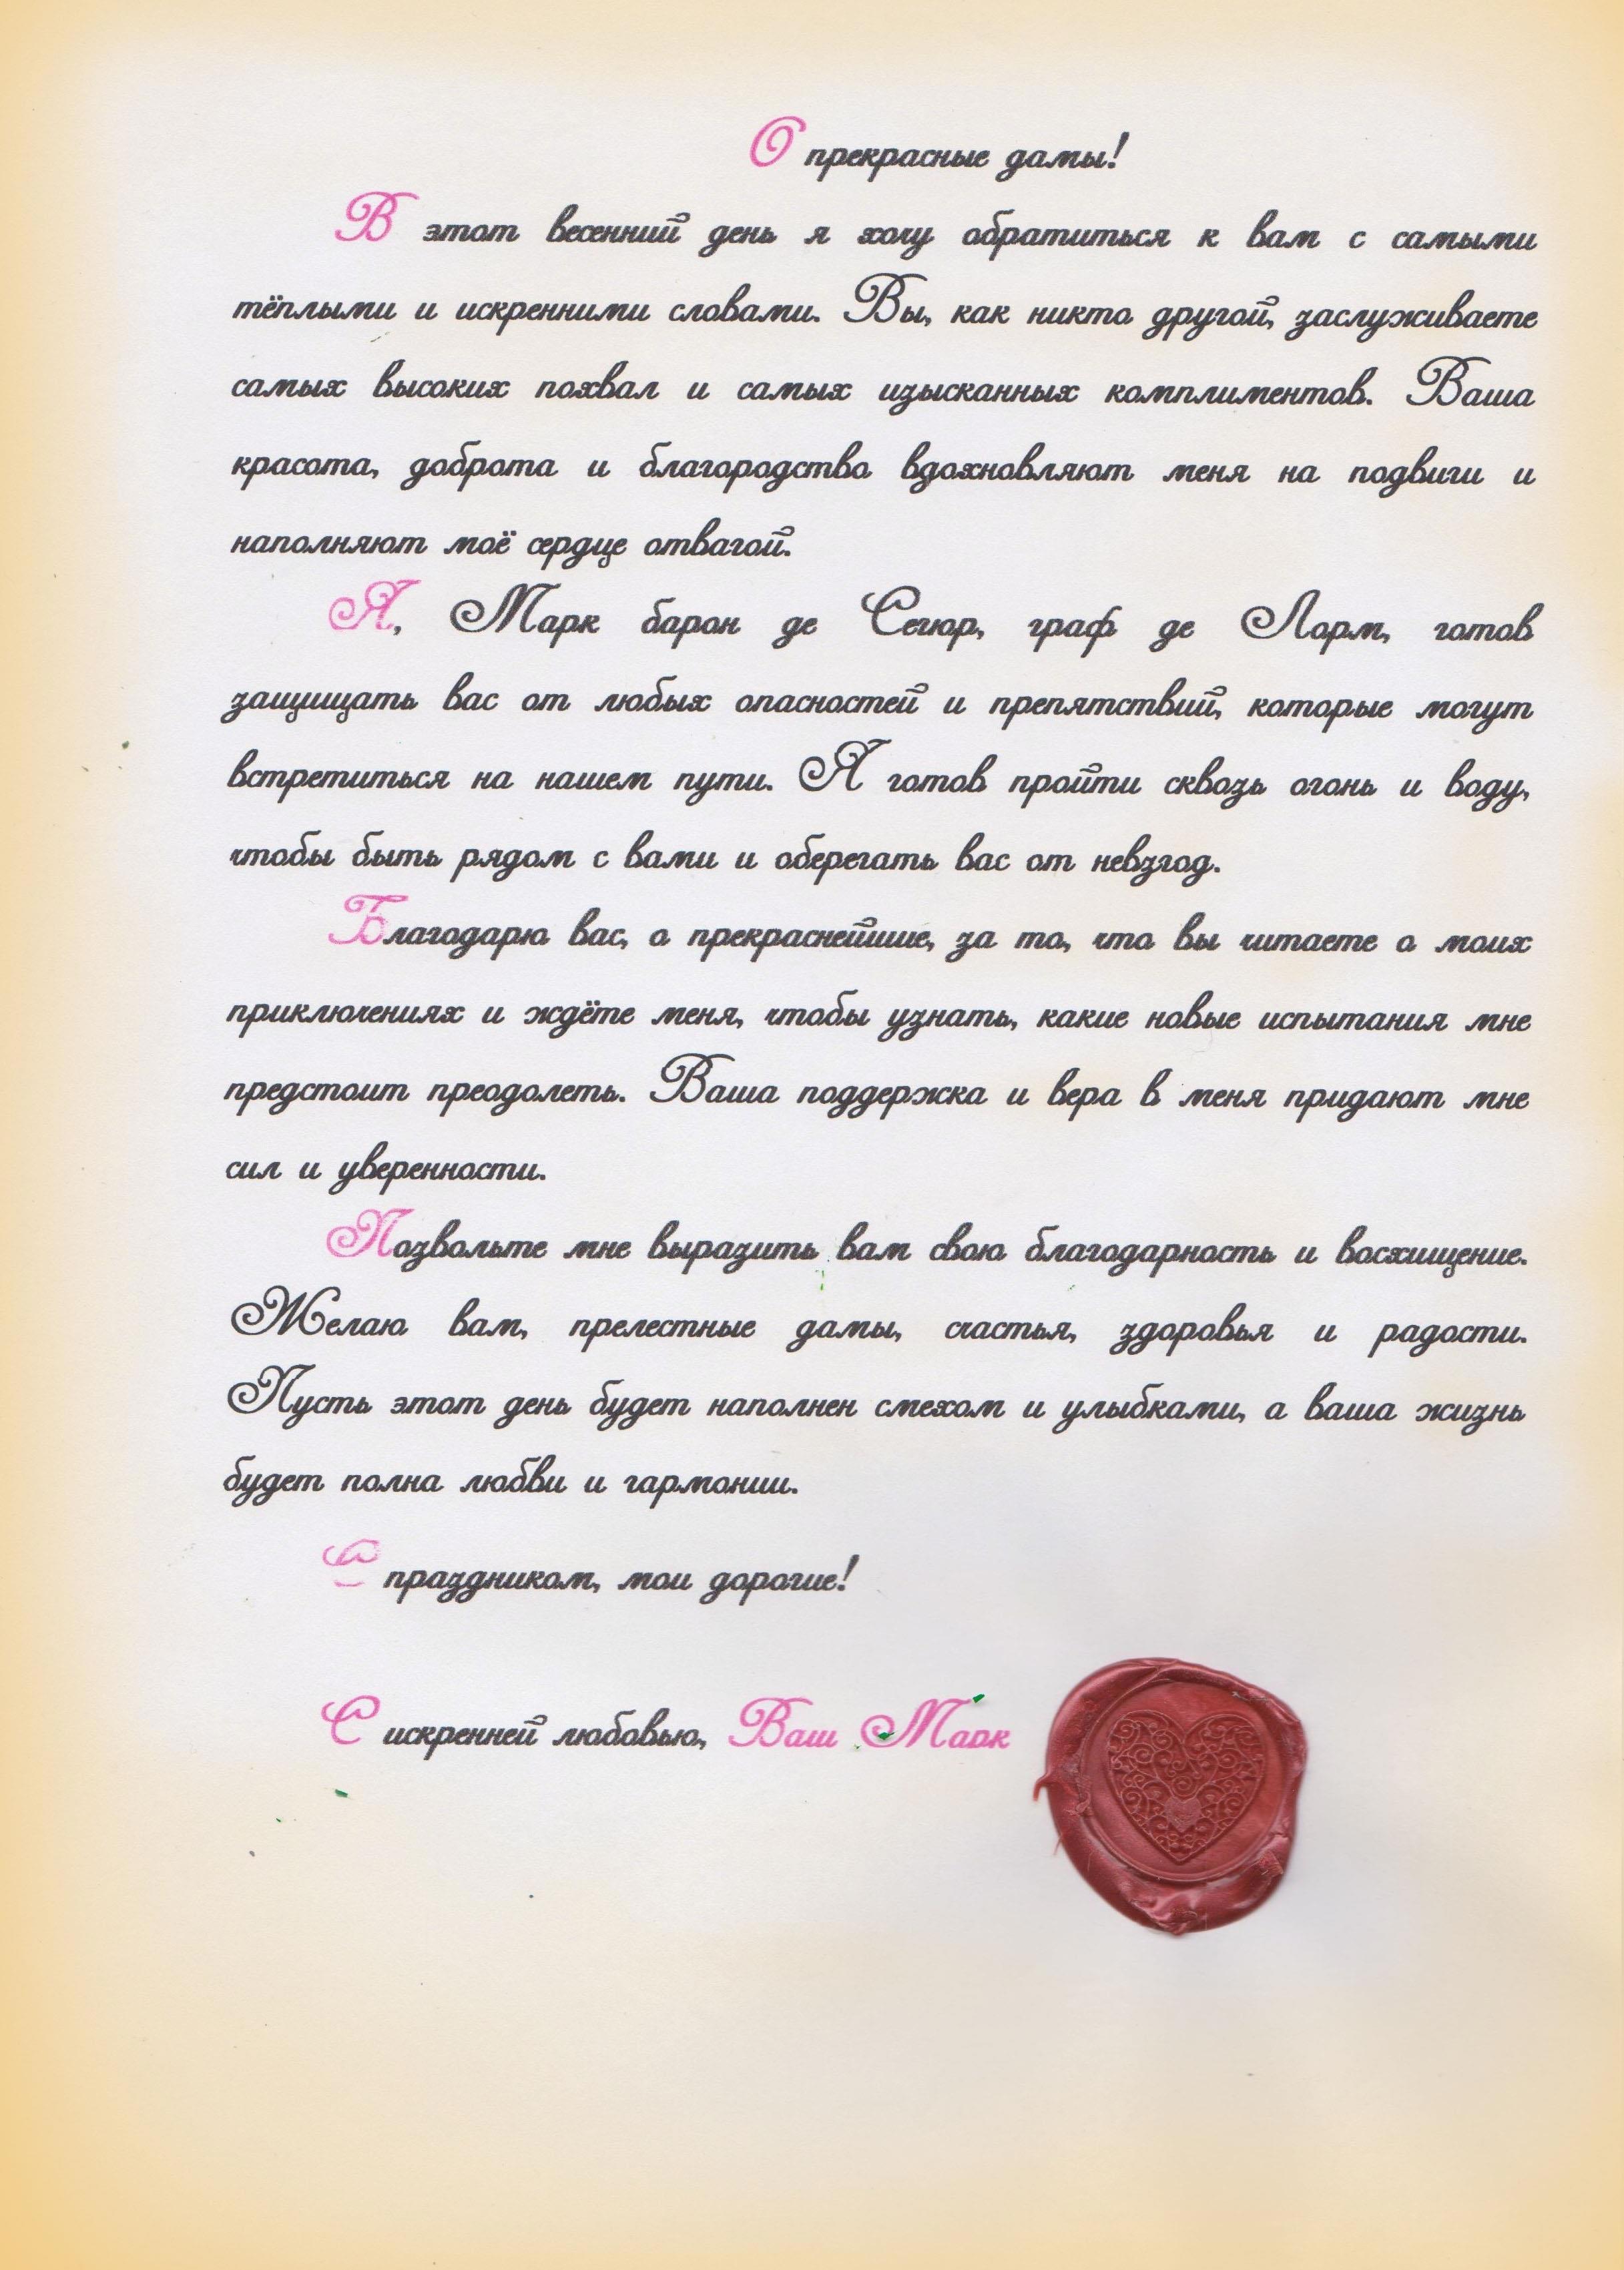 О прекрасные дамы!
В этот весенний день я хочу обратиться к вам с самыми
тёплыми и искренними словами. Вы, как никто другой, заслуживаете
самых высоких похвал и самых изысканных комплиментов. Ваша
красота, доброта и благородство вдохновляют меня на подвиги и
наполняют моё сердце отвагой.
Я, Марк барон де Сегюр, граф де Лорм, готов
защищать вас от любых опасностей и препятствий, которые могут
встретиться на нашем пути. Я готов пройти сквозь огонь и воду,
чтобы быть рядом с вами и оберегать вас от невзгод.
Благодарю вас, о прекраснейшие, за то, что вы читаете о моих
приключениях и ждёте меня, чтобы узнать, какие новые испытания мне
предстоит преодолеть. Ваша поддержка и вера в меня придают мне
сил и уверенности.
Позвольте мне выразить вам свою благодарность и восхищение.
Желаю вам, прелестные дамы, счастья, здоровья и радости.
Пусть этот день будет наполнен смехом и улыбками, а ваша жизнь
будет полна любви и гармонии.
С праздником, мои дорогие!
С искренней любовью, Ваш Марк